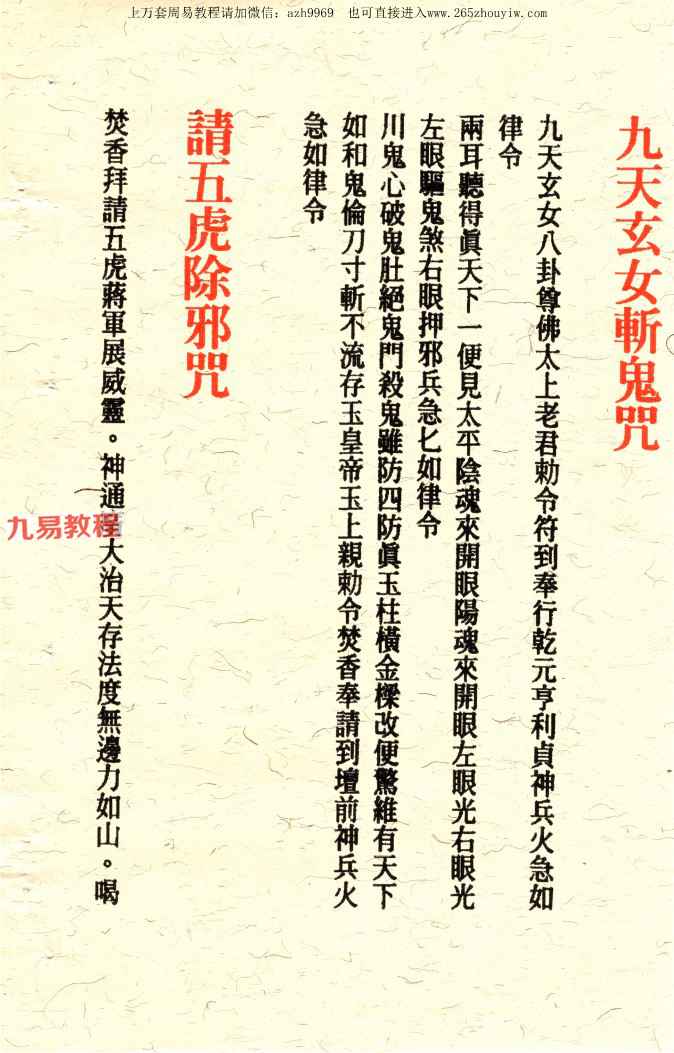 上万套周易教程请加微信：azh9969 也可直接进入www.265zhouyiw.com
九天玄女斬鬼咒
九天玄女八卦尊佛太上老君勅令符到奉行乾元亨利貞神兵火急如
律令
兩耳聽得眞天下一便見太平陰魂來開眼陽魂來開眼左眼光右眼光
左眼驅鬼煞右眼押邪兵急匕如律令
川鬼心破鬼肚絕鬼門殺鬼雖防四防眞玉柱橫金樑改便驚維有天下
如和鬼倫刀寸斬不流存玉皇帝玉上親勅令焚香奉請到壇前神兵火
急如律令
請五虎除邪咒
焚香拜請五虎蔣軍展威靈。神通大治天存法度無邊力如山。喝
九易教程